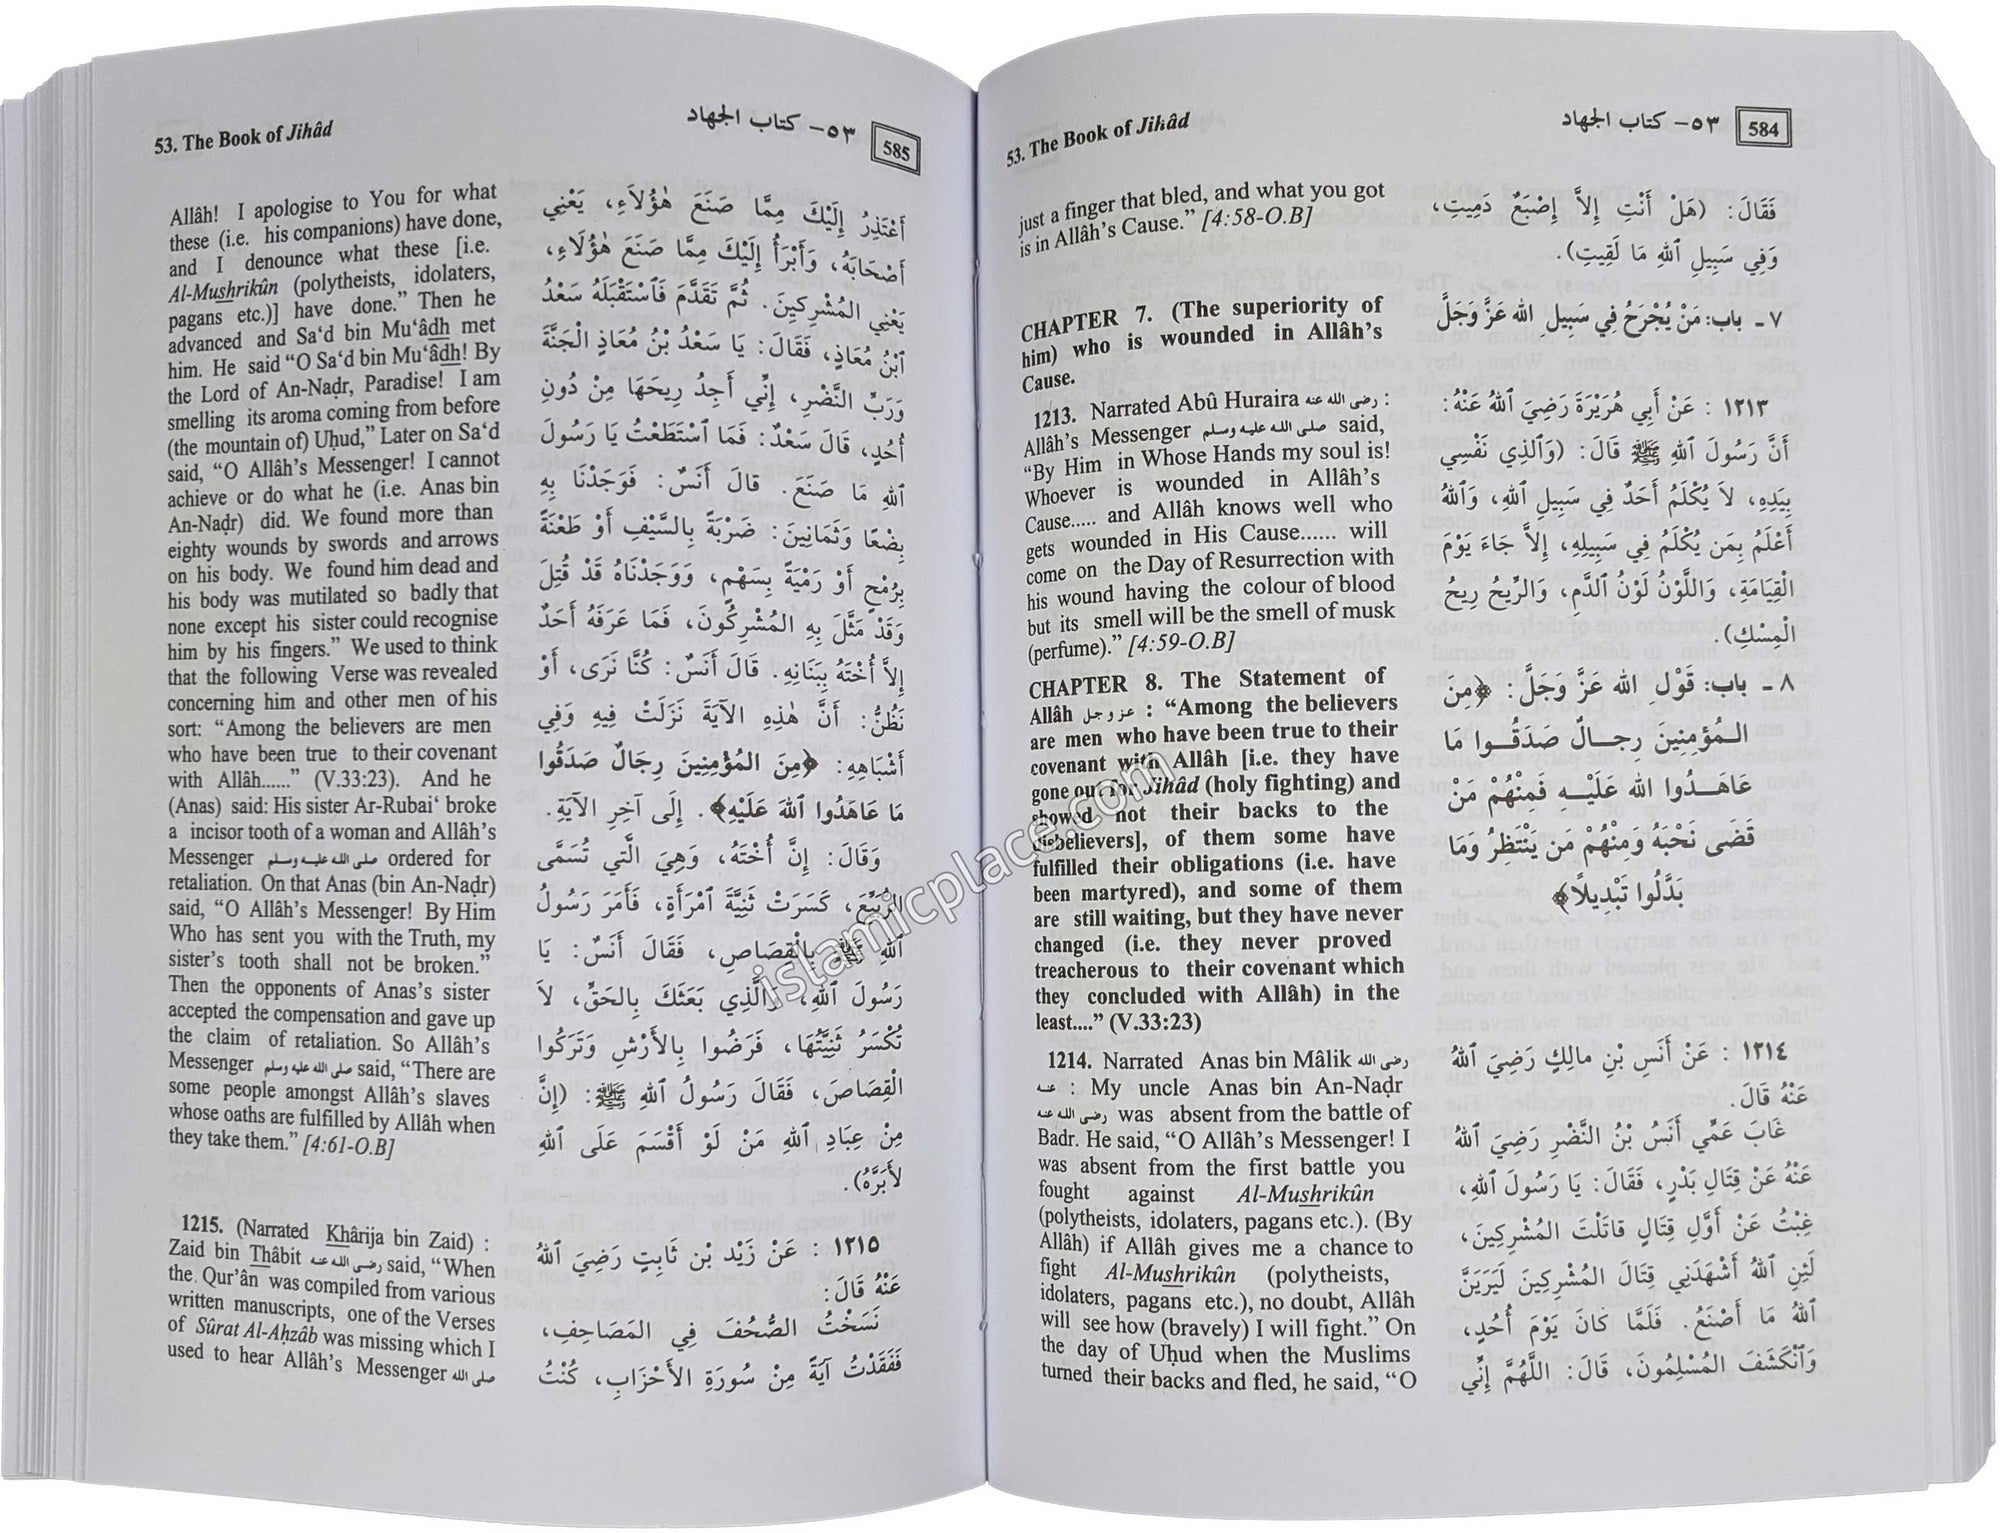 584
٥٣- كتاب الجهاد
53. The Book of Jihâd
just a finger that bled, and what you got
is in Allâh's Cause.” [4:58-O.B]
CHAPTER 7. (The superiority of
him) who is wounded in Allâh's
Cause.
1213. Narrated Abû Huraira رضي الله عنه :
Allâh's Messenger صلى الله عليه وسلم said,
“By Him in Whose Hands my soul is!
Whoever is wounded in Allâh's
Cause..... and Allâh knows well who
gets wounded in His Cause...... will
come on the Day of Resurrection with
his wound having the colour of blood
but its smell will be the smell of musk
(perfume).” [4:59-O.B]
CHAPTER 8. The Statement of
Allâh عز وجل : “Among the believers
are men who have been true to their
covenant with Allâh [i.e. they have
gone out for Jihâd (holy fighting) and
showed not their backs to the
disbelievers], of them some have
fulfilled their obligations (i.e. have
been martyred), and some of them
are still waiting, but they have never
changed (i.e. they never proved
treacherous to their covenant which
they concluded with Allâh) in the
least....” (V.33:23)
1214. Narrated Anas bin Mâlik رضي الله
عنه : My uncle Anas bin An-Naḍr
رضي الله عنه was absent from the battle of
Badr. He said, “O Allâh's Messenger! I
was absent from the first battle you
fought against Al-Mushrikûn
(polytheists, idolaters, pagans etc.). (By
Allâh) if Allâh gives me a chance to
fight Al-Mushrikûn (polytheists,
idolaters, pagans etc.), no doubt, Allâh
will see how (bravely) I will fight.” On
the day of Uḥud when the Muslims
turned their backs and fled, he said, “O
فَقَالَ: (هَلْ أَنْتِ إِلاَّ إِصْبَعٌ دَمِيتِ،
وَفِي سَبِيلِ اللهِ مَا لَقِيتِ).
٧ ـ باب: مَنْ يُجْرَحُ فِي سَبِيلِ الله عَزَّ وَجَلَّ
١٢١٣ : عَنْ أَبِي هُرَيْرَةَ رَضِيَ اللهُ عَنْهُ:
أَنَّ رَسُولَ اللهِ ﷺ قَالَ: (وَالَّذِي نَفْسِي
بِيَدِهِ، لاَ يُكْلَمُ أَحَدٌ فِي سَبِيلِ اللهِ، وَاللهُ
أَعْلَمُ بِمَن يُكْلَمُ فِي سَبِيلِهِ، إِلاَّ جَاءَ يَوْمَ
القِيَامَةِ، وَاللَّوْنُ لَوْنُ الدَّمِ، وَالرِّيحُ رِيحُ
الْمِسْكِ).
٨ ـ باب: قَوْلِ الله عَزَّ وَجَلَّ: ﴿مِنَ
المُؤمِنِينَ رِجالٌ صَدَقُوا مَا
عَاهَدُوا الله عَلَيْهِ فَمِنْهُمْ مَنْ
قَضَى نَحْبَهُ وَمِنْهُمْ مَن يَنْتَظِرُ وَمَا
بَدَّلُوا تَبْدِيلاً﴾
١٢١٤ : عَنْ أَنَسِ بْنِ مالِكٍ رَضِيَ اللهُ
عَنْهُ قَالَ.
غَابَ عَمِّي أَنَسُ بْنُ النَّضْرِ رَضِيَ اللهُ
عَنْهُ عَنْ قِتَالِ بَدْرٍ، فَقَالَ: يَا رَسُولَ اللهِ،
غِبْتُ عَنْ أَوَّلِ قِتَالٍ قَاتَلْتَ المُشْرِكِينَ،
لَئِنِ اللهُ أَشْهَدَنِي قِتَالَ المُشْرِكِينَ لَيَرَيَنَّ
اللهُ مَا أَصْنَعُ. فَلَمَّا كَانَ يَوْمَ أُحُدٍ،
وَانْكَشَفَ المُسْلِمُونَ، قَالَ: اللَّهُمَّ إِنِّي
585
٥٣- كتاب الجهاد
53. The Book of Jihâd
Allâh! I apologise to You for what
these (i.e. his companions) have done,
and I denounce what these [i.e.
Al-Mushrikûn (polytheists, idolaters,
pagans etc.)] have done.” Then he
advanced and Sa‘d bin Mu‘âdh met
him. He said “O Sa‘d bin Mu‘âdh! By
the Lord of An-Naḍr, Paradise! I am
smelling its aroma coming from before
(the mountain of) Uḥud,” Later on Sa‘d
said, “O Allâh's Messenger! I cannot
achieve or do what he (i.e. Anas bin
An-Naḍr) did. We found more than
eighty wounds by swords and arrows
on his body. We found him dead and
his body was mutilated so badly that
none except his sister could recognise
him by his fingers.” We used to think
that the following Verse was revealed
concerning him and other men of his
sort: “Among the believers are men
who have been true to their covenant
with Allâh......” (V.33:23). And he
(Anas) said: His sister Ar-Rubai‘ broke
a incisor tooth of a woman and Allâh's
Messenger صلى الله عليه وسلم ordered for
retaliation. On that Anas (bin An-Naḍr)
said, “O Allâh's Messenger! By Him
Who has sent you with the Truth, my
sister's tooth shall not be broken.”
Then the opponents of Anas's sister
accepted the compensation and gave up
the claim of retaliation. So Allâh's
Messenger صلى الله عليه وسلم said, “There are
some people amongst Allâh's slaves
whose oaths are fulfilled by Allâh when
they take them.” [4:61-O.B]
1215. (Narrated Khârija bin Zaid) :
Zaid bin Thâbit رضي الله عنه said, “When
the Qur'ân was compiled from various
written manuscripts, one of the Verses
of Sûrat Al-Aḥzâb was missing which I
used to hear Allâh's Messenger صلى الله
أَعْتَذِرُ إِلَيْكَ مِمَّا صَنَعَ هٰؤُلاَءِ، يَعْنِي
أَصْحَابَهُ، وَأَبْرَأُ إِلَيْكَ مِمَّا صَنَعَ هٰؤُلاَءِ،
يَعْنِي المُشْرِكِينَ. ثُمَّ تَقَدَّمَ فَاسْتَقْبَلَهُ سَعْدُ
ابْنُ مُعَاذٍ، فَقَالَ: يَا سَعْدُ بْنُ مُعَاذٍ الْجَنَّةَ
وَرَبِّ النَّضْرِ، إِنِّي أَجِدُ رِيحَهَا مِنْ دُونِ
أُحُدٍ، قَالَ سَعْدٌ: فَمَا اسْتَطَعْتُ يَا رَسُولَ
اللهِ مَا صَنَعَ. قالَ أَنَسٌ: فَوَجَدْنَا بِهِ
بِضْعًا وَثَمَانِينَ: ضَرْبَةً بِالسَّيْفِ أَوْ طَعْنَةً
بِرُمْحٍ أَوْ رَمْيَةً بِسَهْمٍ، وَوَجَدْنَاهُ قَدْ قُتِلَ
وَقَدْ مَثَّلَ بِهِ المُشْرِكُونَ، فَمَا عَرَفَهُ أَحَدٌ
إِلاَّ أُخْتُهُ بِبَنَانِهِ. قَالَ أَنَسٌ: كُنَّا نَرَى، أَوْ
نَظُنُّ: أَنَّ هٰذِهِ الآيَةَ نَزَلَتْ فِيهِ وَفِي
أَشْبَاهِهِ: ﴿مِنَ المُؤْمِنِينَ رِجَالٌ صَدَقُوا
مَا عَاهَدُوا اللهَ عَلَيْهِ﴾. إِلَى آخِرِ الآيَةِ.
وَقَالَ: إِنَّ أُخْتَهُ، وَهِيَ الَّتِي تُسَمَّى
الرُّبَيِّعَ، كَسَرَتْ ثَنِيَّةَ امْرَأَةٍ، فَأَمَرَ رَسُولُ
اللهِ ﷺ بِالْقِصَاصِ، فَقَالَ أَنَسٌ: يَا
رَسُولَ اللهِ، وَالَّذِي بَعَثَكَ بِالحَقِّ، لاَ
تُكْسَرُ ثَنِيَّتُهَا، فَرَضُوا بِالأَرْشِ وَتَرَكُوا
الْقِصَاصَ، فَقَالَ رَسُولُ اللهِ ﷺ: (إِنَّ
مِنْ عِبَادِ اللهِ مَنْ لَوْ أَقْسَمَ عَلَى اللهِ
لأَبَرَّهُ).
١٢١٥ : عَنْ زَيْدِ بْنِ ثَابِتٍ رَضِيَ اللهُ
عَنْهُ قَالَ:
نَسَخْتُ الصُّحُفَ فِي المَصَاحِفِ،
فَفَقَدْتُ آيَةً مِنْ سُورَةِ الأَحْزَابِ، كُنْتُ
islamicplace.com